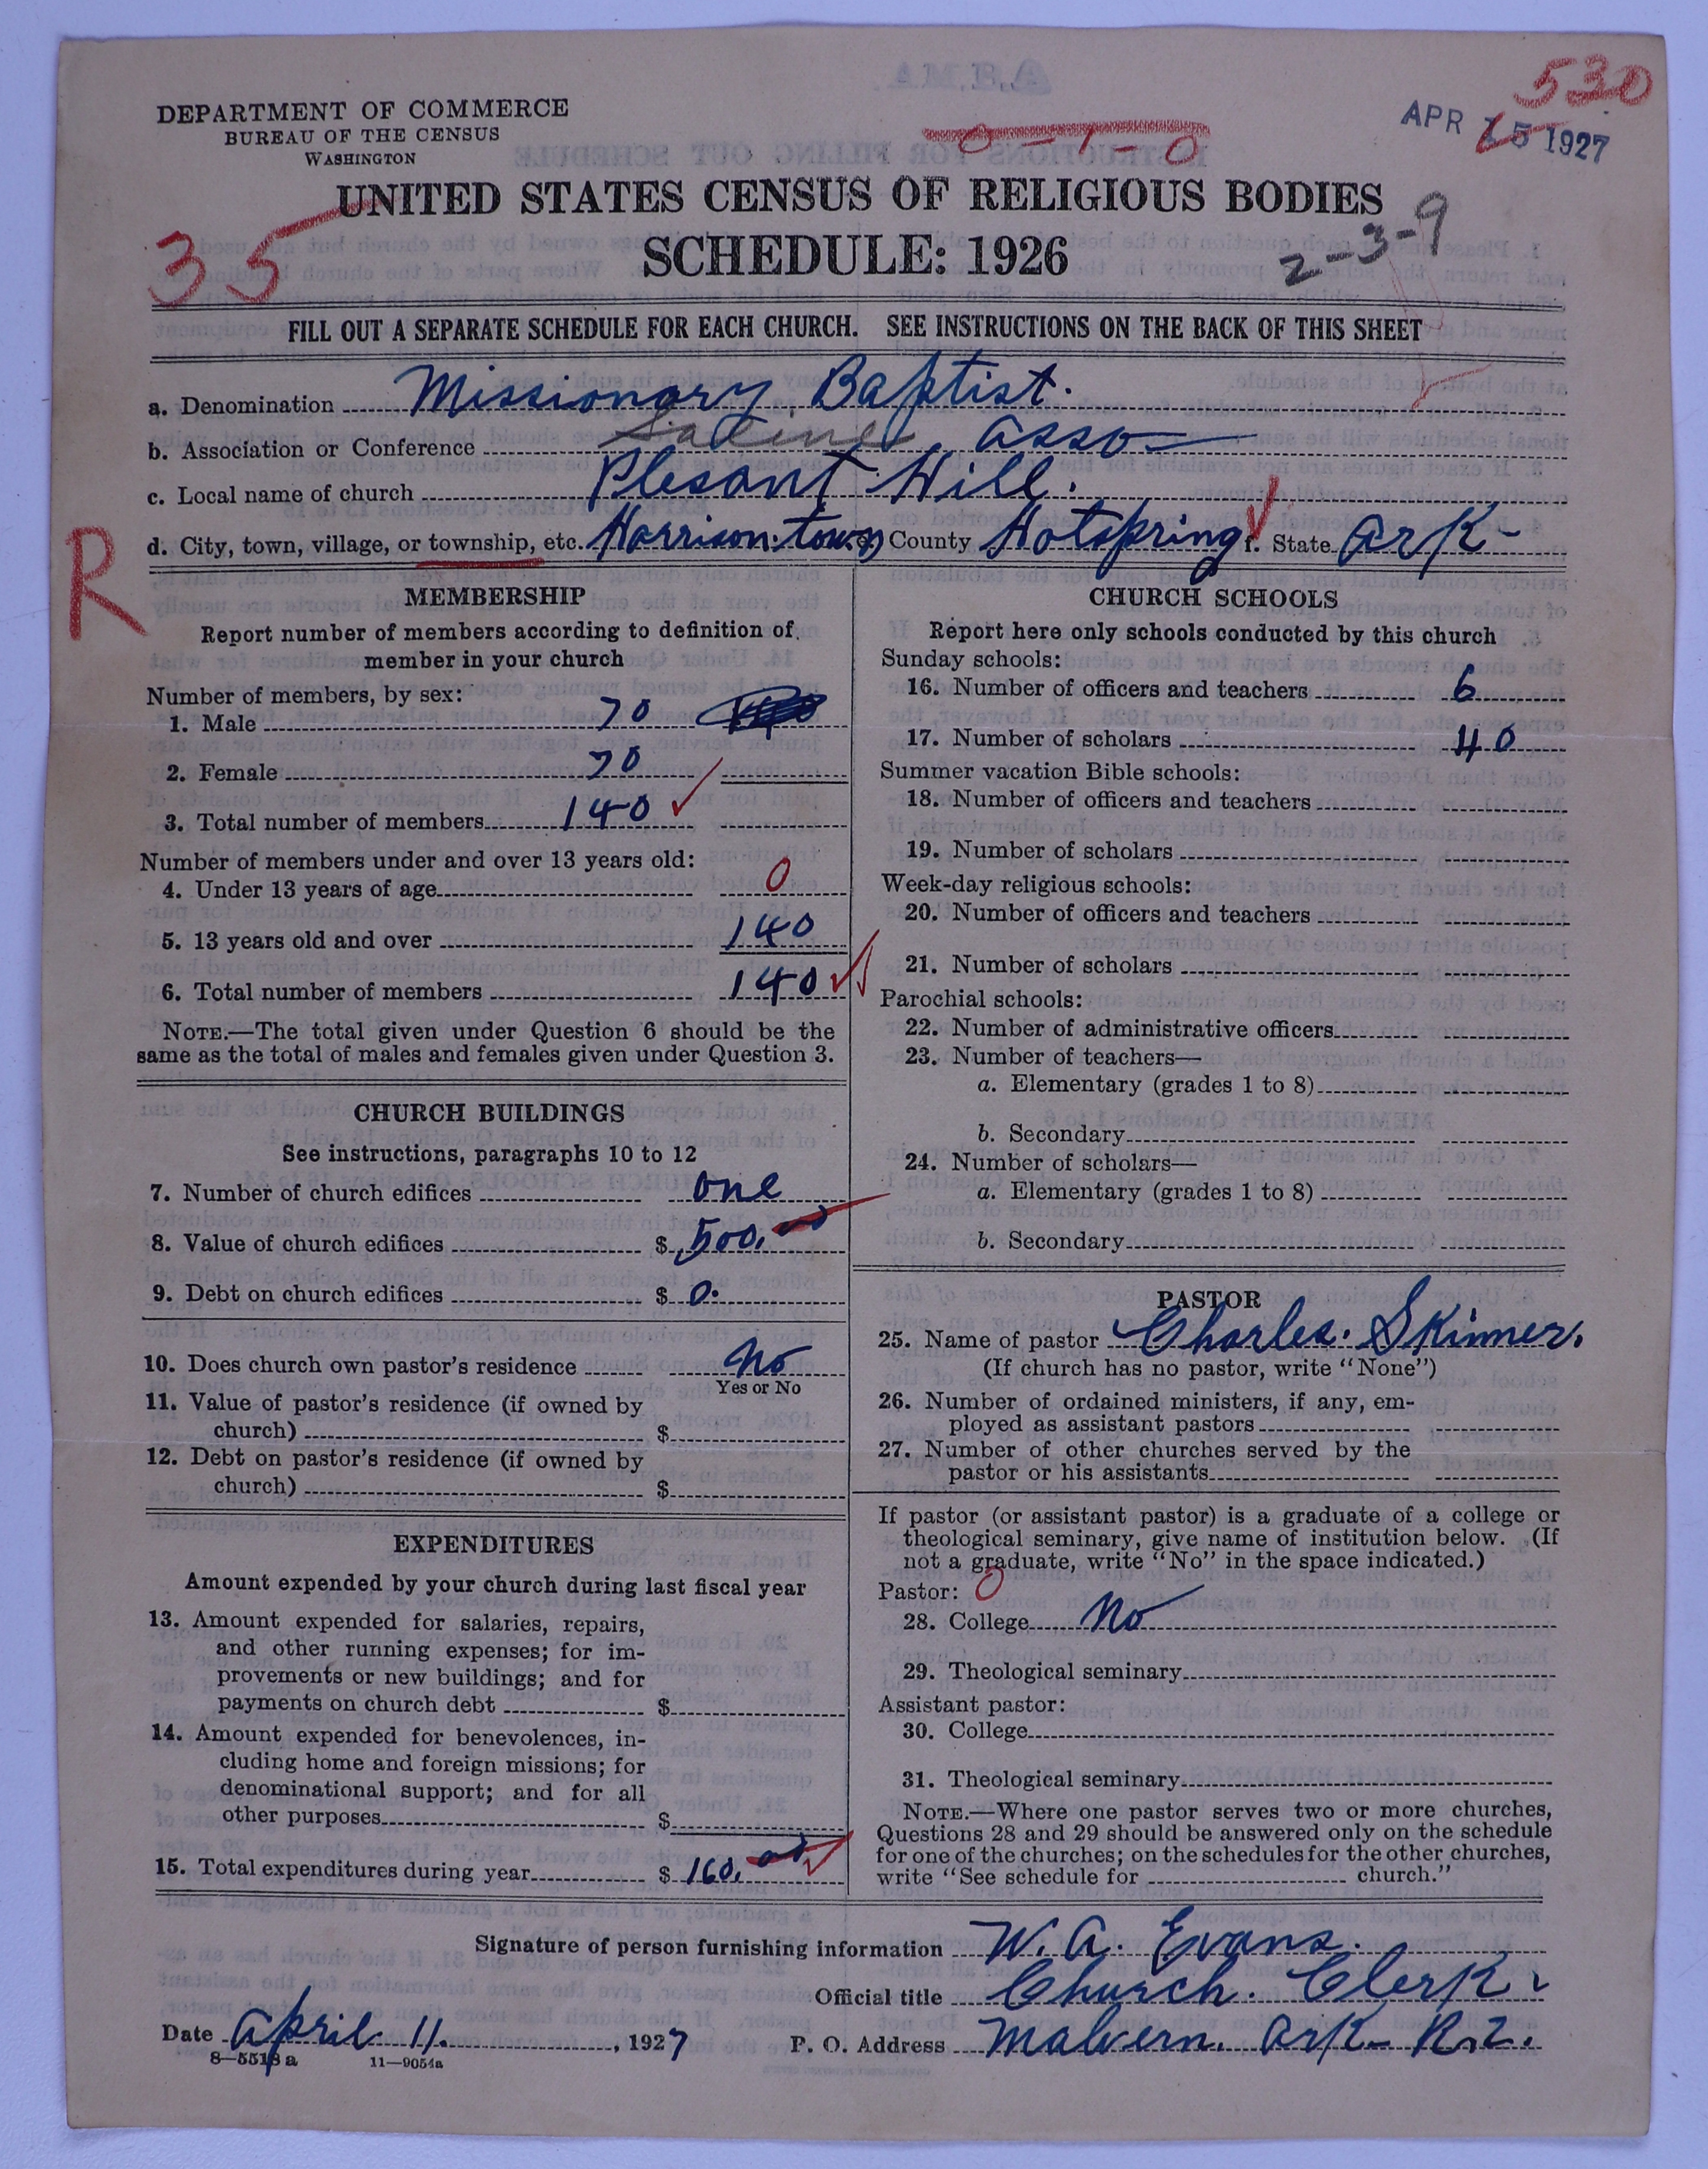 530
APR 15 1927
DEPARTMENT OF COMMERCE
BUREAU OF THE CENSUS
WASHINGTON
0-1-0
UNITED STATES CENSUS OF RELIGIOUS BODIES
SCHEDULE: 1926
35
2-3-9
FILL OUT A SEPARATE SCHEDULE FOR EACH CHURCH. SEE INSTRUCTIONS ON THE BACK OF THIS SHEET
a. Denomination Missionary Baptist.
b. Association or Conference Saline asso
c. Local name of church Plesant Hill.
R
d. City, town, village, or township, etc. Harrison town e. County Hotspring f. State Ark
MEMBERSHIP
Report number of members according to definition of member in your church
Number of members, by sex:
1. Male 70
2. Female 70
3. Total number of members 140
Number of members under and over 13 years old:
4. Under 13 years of age 0
5. 13 years old and over 140
6. Total number of members 140
NOTE.—The total given under Question 6 should be the
same as the total of males and females given under Question 3.
CHURCH BUILDINGS
See instructions, paragraphs 10 to 12
7. Number of church edifices one
8. Value of church edifices $ 500.00
9. Debt on church edifices $ 0.
10. Does church own pastor's residence No
Yes or No
11. Value of pastor's residence (if owned by
church) $
12. Debt on pastor's residence (if owned by
church) $
EXPENDITURES
Amount expended by your church during last fiscal year
13. Amount expended for salaries, repairs,
and other running expenses; for im-
provements or new buildings; and for
payments on church debt $
14. Amount expended for benevolences, in-
cluding home and foreign missions; for
denominational support; and for all
other purposes $
15. Total expenditures during year $ 160.00
CHURCH SCHOOLS
Report here only schools conducted by this church
Sunday schools:
16. Number of officers and teachers 6
17. Number of scholars 40
Summer vacation Bible schools:
18. Number of officers and teachers
19. Number of scholars
Week-day religious schools:
20. Number of officers and teachers
21. Number of scholars
Parochial schools:
22. Number of administrative officers
23. Number of teachers—
a. Elementary (grades 1 to 8)
b. Secondary
24. Number of scholars—
a. Elementary (grades 1 to 8)
b. Secondary
PASTOR
25. Name of pastor Charles. Skinner.
(If church has no pastor, write "None")
26. Number of ordained ministers, if any, em-
ployed as assistant pastors
27. Number of other churches served by the
pastor or his assistants
If pastor (or assistant pastor) is a graduate of a college or
theological seminary, give name of institution below. (If
not a graduate, write "No" in the space indicated.)
Pastor: 0
28. College No
29. Theological seminary
Assistant pastor:
30. College
31. Theological seminary
NOTE.—Where one pastor serves two or more churches,
Questions 28 and 29 should be answered only on the schedule
for one of the churches; on the schedules for the other churches,
write "See schedule for church."
Signature of person furnishing information W. A. Evans.
Official title Church. Clerk
Date April 11. , 1927 P. O. Address Malvern. Ark R.2.
8—5518 a 11—9054a